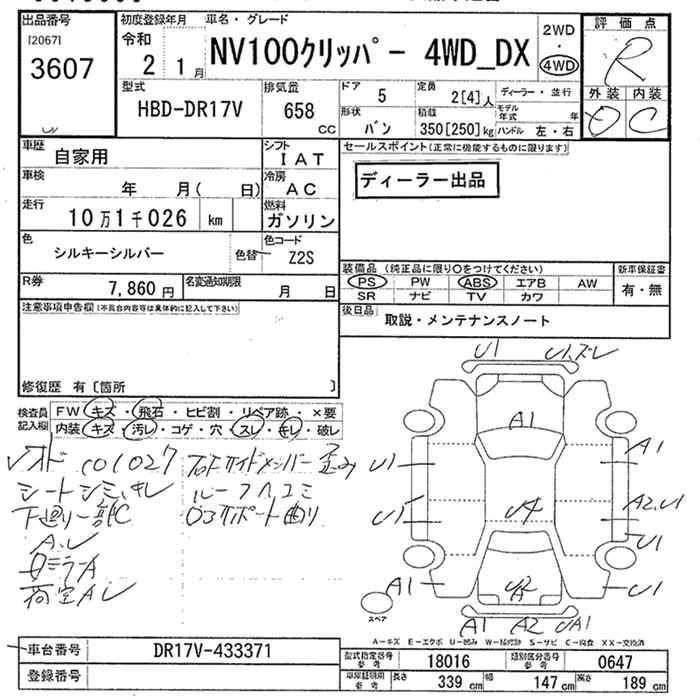 出品番号
[2067]
3607
初度登録年月
令和
2 1月
車名・グレード
NV100クリッパー 4WD_DX
2WD
・
4WD
評価点
R
外装 内装
D C
型式
HBD-DR17V
排気量
658
CC
ドア
5
定員
2[4]人
ディーラー・並行
形状
バン
積載
350[250]kg
モデル年式 年
ハンドル 左・右
車歴
自家用
シフト
IAT
車検
年 月( 日)
冷房
AC
走行
10万1千026 km
燃料
ガソリン
色
シルキーシルバー
色替
色コード
Z2S
R券
7,860円
名変通知期限
月 日
セールスポイント(正常に機能するものに限ります)
ディーラー出品
装備品(純正品に限り○をつけてください)
PS PW ABS エアB AW
SR ナビ TV カワ
新車保証書
有・無
後日品
取説・メンテナンスノート
注意事項申告欄(不具合内容等は具体的に記入して下さい)
修復歴 有〔箇所 〕
検査員記入欄
FW キズ・飛石・ヒビ割・リペア跡・×要
内装 キズ・汚レ・コゲ・穴・スレ・キレ・破レ
オド 101027
シートシミ、キレ
下廻り一部C
A、U
ミラーA
荷室A U
フロドサイドメンバー歪み
ルーフヘコミ
コアサポート曲り
U1 U1、ズレ
A1
U1 A1
U1 A2、U1
U1
A1 U1
A1 A2 UA1
スペア
A-キズ E-エクボ U-凹み W-補修跡 S-サビ C-腐食 XX-交換済
車台番号
DR17V-433371
登録番号
型式指定番号
参考
18016
類別区分番号
参考
0647
車庫証明用
参考
長さ
339 cm
幅
147 cm
高さ
189 cm